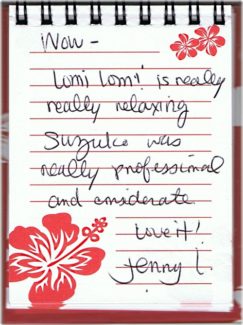 Wow -
Lomi Lomi is really
really relaxing
Suzuko was
really professional
and considerate.
Love it!
Jenny L.